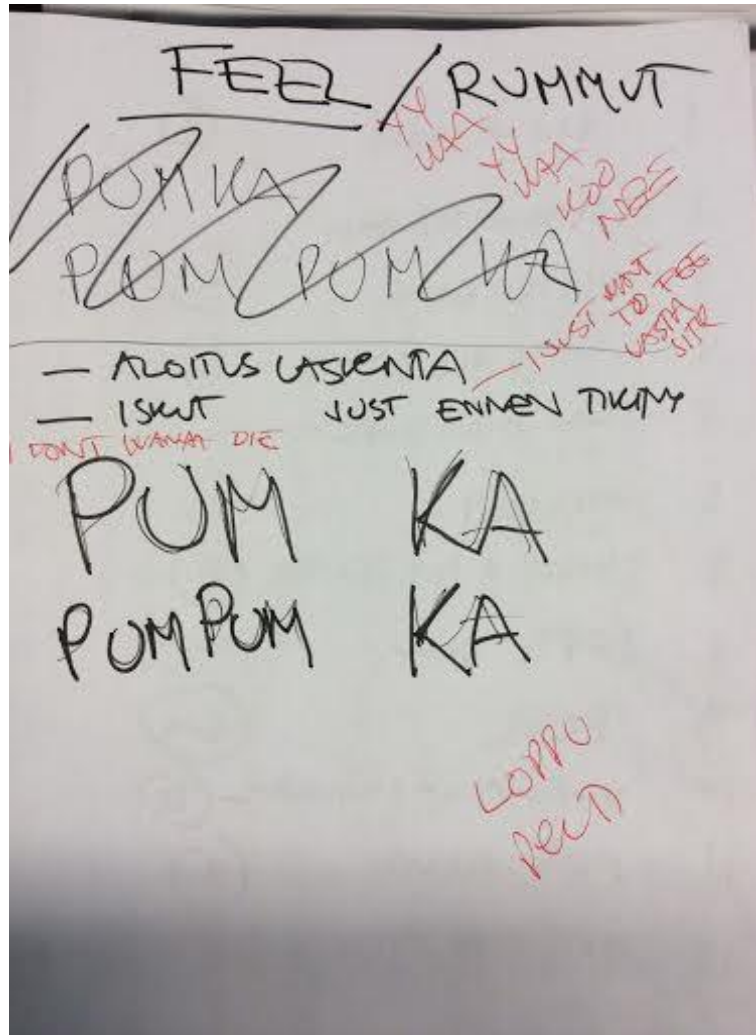 FEEL / RUMMUT
YY
KAA
YY
KAA
KOO
NEE
PUM KA
PUM PUM KA
I JUST WANT
TO FEE
VASTA
SITR
— ALOITUS LASKENTA —
— ISKUT JUST ENNEN
I DONT WANNA DIE
PUM KA
PUM PUM KA
LOPPU
PELTI